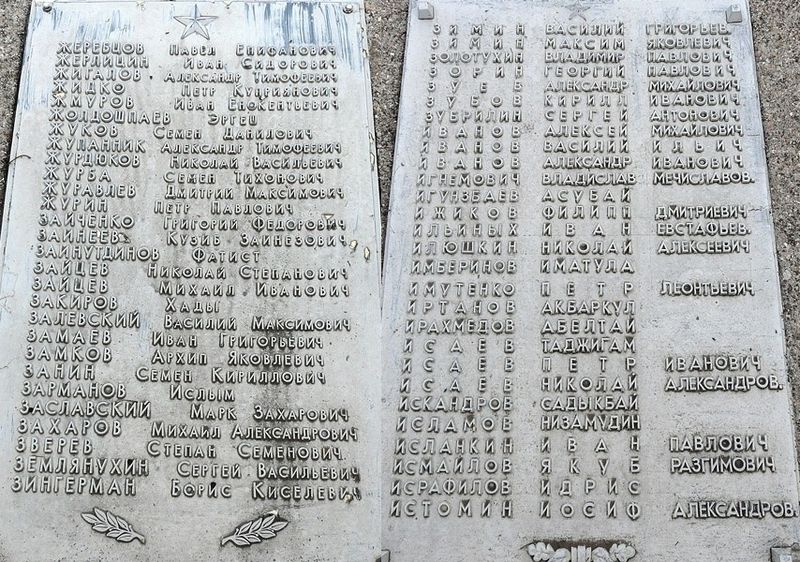 ЖЕРЕБЦОВ ПАВЕЛ ЕПИФАНОВИЧ
ЖЕРЛИЦИН ИВАН СИДОРОВИЧ
ЖИГАЛОВ АЛЕКСАНДР ТИМОФЕЕВИЧ
ЖИДКО ПЕТР КУПРИЯНОВИЧ
ЖМУРОВ ИВАН ЕНОКЕНТЬЕВИЧ
ЖОЛДОШПАЕВ ЭРГЕШ
ЖУКОВ СЕМЕН ДАНИЛОВИЧ
ЖУПАННИК АЛЕКСАНДР ТИМОФЕЕВИЧ
ЖУРДЮКОВ НИКОЛАЙ ВАСИЛЬЕВИЧ
ЖУРБА СЕМЕН ТИХОНОВИЧ
ЖУРАВЛЕВ ДМИТРИЙ МАКСИМОВИЧ
ЖУРИН ПЕТР ПАВЛОВИЧ
ЗАЙЧЕНКО ГРИГОРИЙ ФЕДОРОВИЧ
ЗАЙНЕЕВ КУЗИБ ЗАЙНЕЗОВИЧ
ЗАЙНУТДИНОВ ФАТИСТ
ЗАЙЦЕВ НИКОЛАЙ СТЕПАНОВИЧ
ЗАЙЦЕВ МИХАИЛ ИВАНОВИЧ
ЗАКИРОВ ХАДЫ
ЗАЛЕВСКИЙ ВАСИЛИЙ МАКСИМОВИЧ
ЗАМАЕВ ИВАН ГРИГОРЬЕВИЧ
ЗАМКОВ АРХИП ЯКОВЛЕВИЧ
ЗАНИН СЕМЕН КИРИЛЛОВИЧ
ЗАРМАНОВ ИСЛЫМ
ЗАСЛАВСКИЙ МАРК ЗАХАРОВИЧ
ЗАХАРОВ МИХАИЛ АЛЕКСАНДРОВИЧ
ЗВЕРЕВ СТЕПАН СЕМЕНОВИЧ
ЗЕМЛЯНУХИН СЕРГЕЙ ВАСИЛЬЕВИЧ
ЗИНГЕРМАН БОРИС КИСЕЛЕВИЧ
ЗИМИН ВАСИЛИЙ ГРИГОРЬЕВ.
ЗИМИН МАКСИМ ЯКОВЛЕВИЧ
ЗОЛОТУХИН ВЛАДИМИР ПАВЛОВИЧ
ЗОРИН ГЕОРГИЙ ПАВЛОВИЧ
ЗУЕВ АЛЕКСАНДР МИХАЙЛОВИЧ
ЗУБОВ КИРИЛЛ ИВАНОВИЧ
ЗУБРИЛИН СЕРГЕЙ АНТОНОВИЧ
ИВАНОВ АЛЕКСЕЙ МИХАЙЛОВИЧ
ИВАНОВ ВАСИЛИЙ ИЛЬИЧ
ИВАНОВ АЛЕКСАНДР ИВАНОВИЧ
ИГНЕМОВИЧ ВЛАДИСЛАВ МЕЧИСЛАВОВ.
ИГУНЗБАЕВ АСУБАЙ
ИЖИКОВ ФИЛИПП ДМИТРИЕВИЧ
ИЛЬИНЫХ ИВАН ЕВСТАФЬЕВ.
ИЛЮШКИН НИКОЛАЙ АЛЕКСЕЕВИЧ
ИМБЕРИНОВ ИМАТУЛА
ИМУТЕНКО ПЕТР ЛЕОНТЬЕВИЧ
ИРТАНОВ АКБАРКУЛ
ИРАХМЕДОВ АБЕЛТАЙ
ИСАЕВ ТАДЖИГАМ
ИСАЕВ ПЕТР ИВАНОВИЧ
ИСАЕВ НИКОЛАЙ АЛЕКСАНДРОВ.
ИСКАНДРОВ САДЫКБАЙ
ИСЛАМОВ НИЗАМУДИН
ИСЛАНКИН ИВАН ПАВЛОВИЧ
ИСМАЙЛОВ ЯКУБ РАЗГИМОВИЧ
ИСРАФИЛОВ ИДРИС
ИСТОМИН ИОСИФ АЛЕКСАНДРОВ.